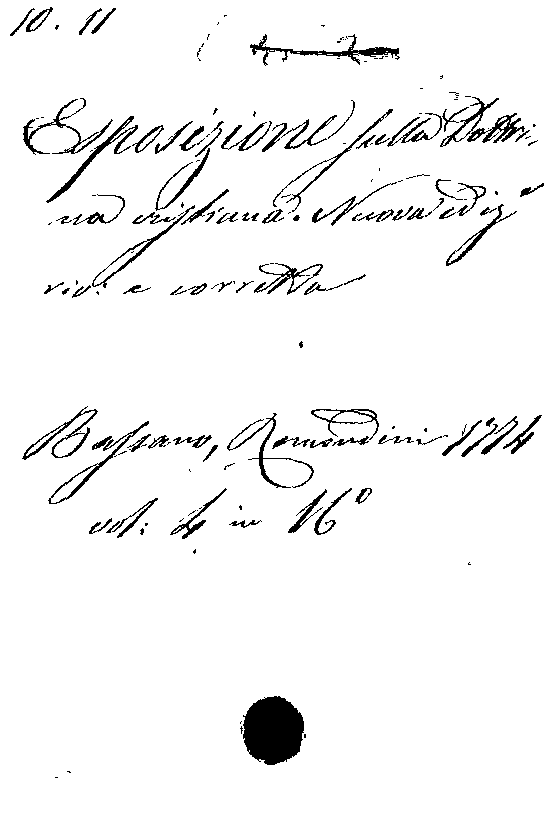 10. 11
Esposizione sulla Dottri-
na cristiana. Nuova ediz.e
riv: e corretta
Bassano, Remondini 1774
vol: 4 in 16°